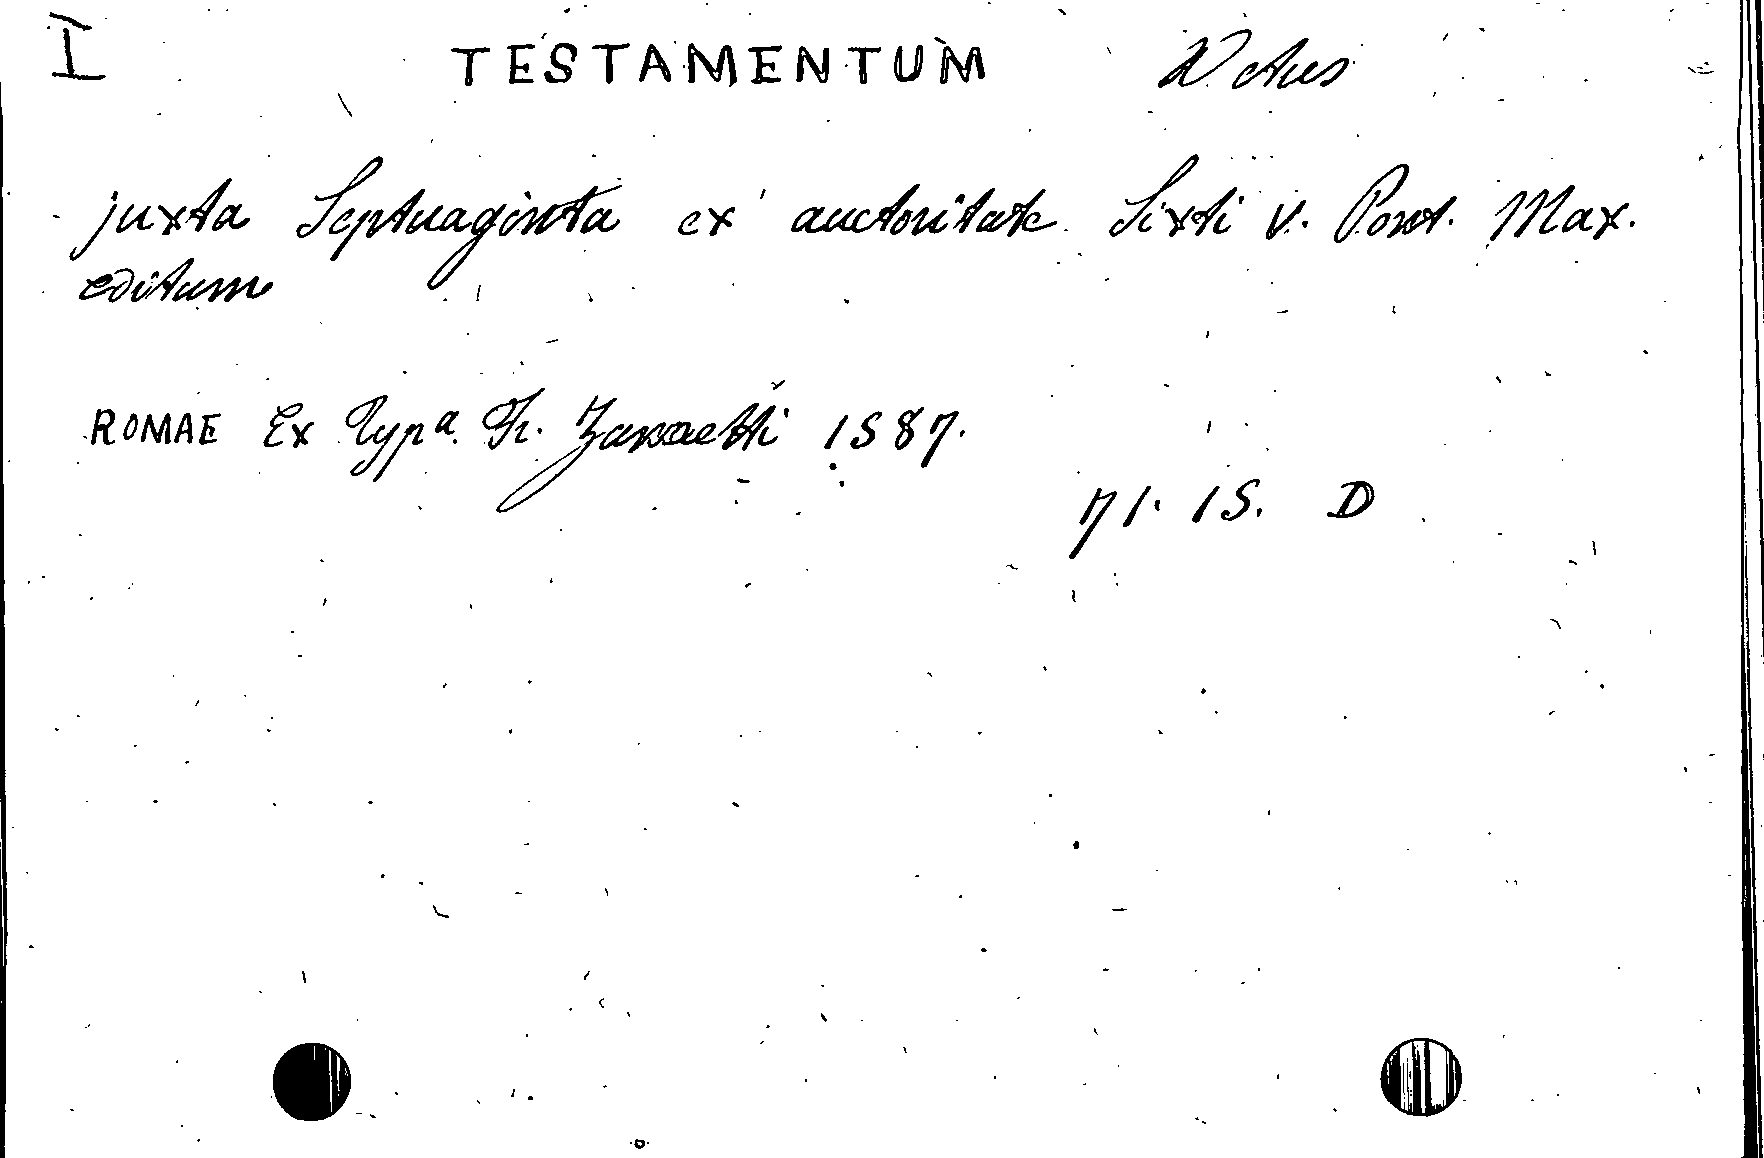 I TESTAMENTUM Vetus
juxta Septuaginta ex auctoritate Sixti V. Pont. Max.
editum
ROMAE Ex Typª. Fr. Zannetti 1587.
71. 15. D